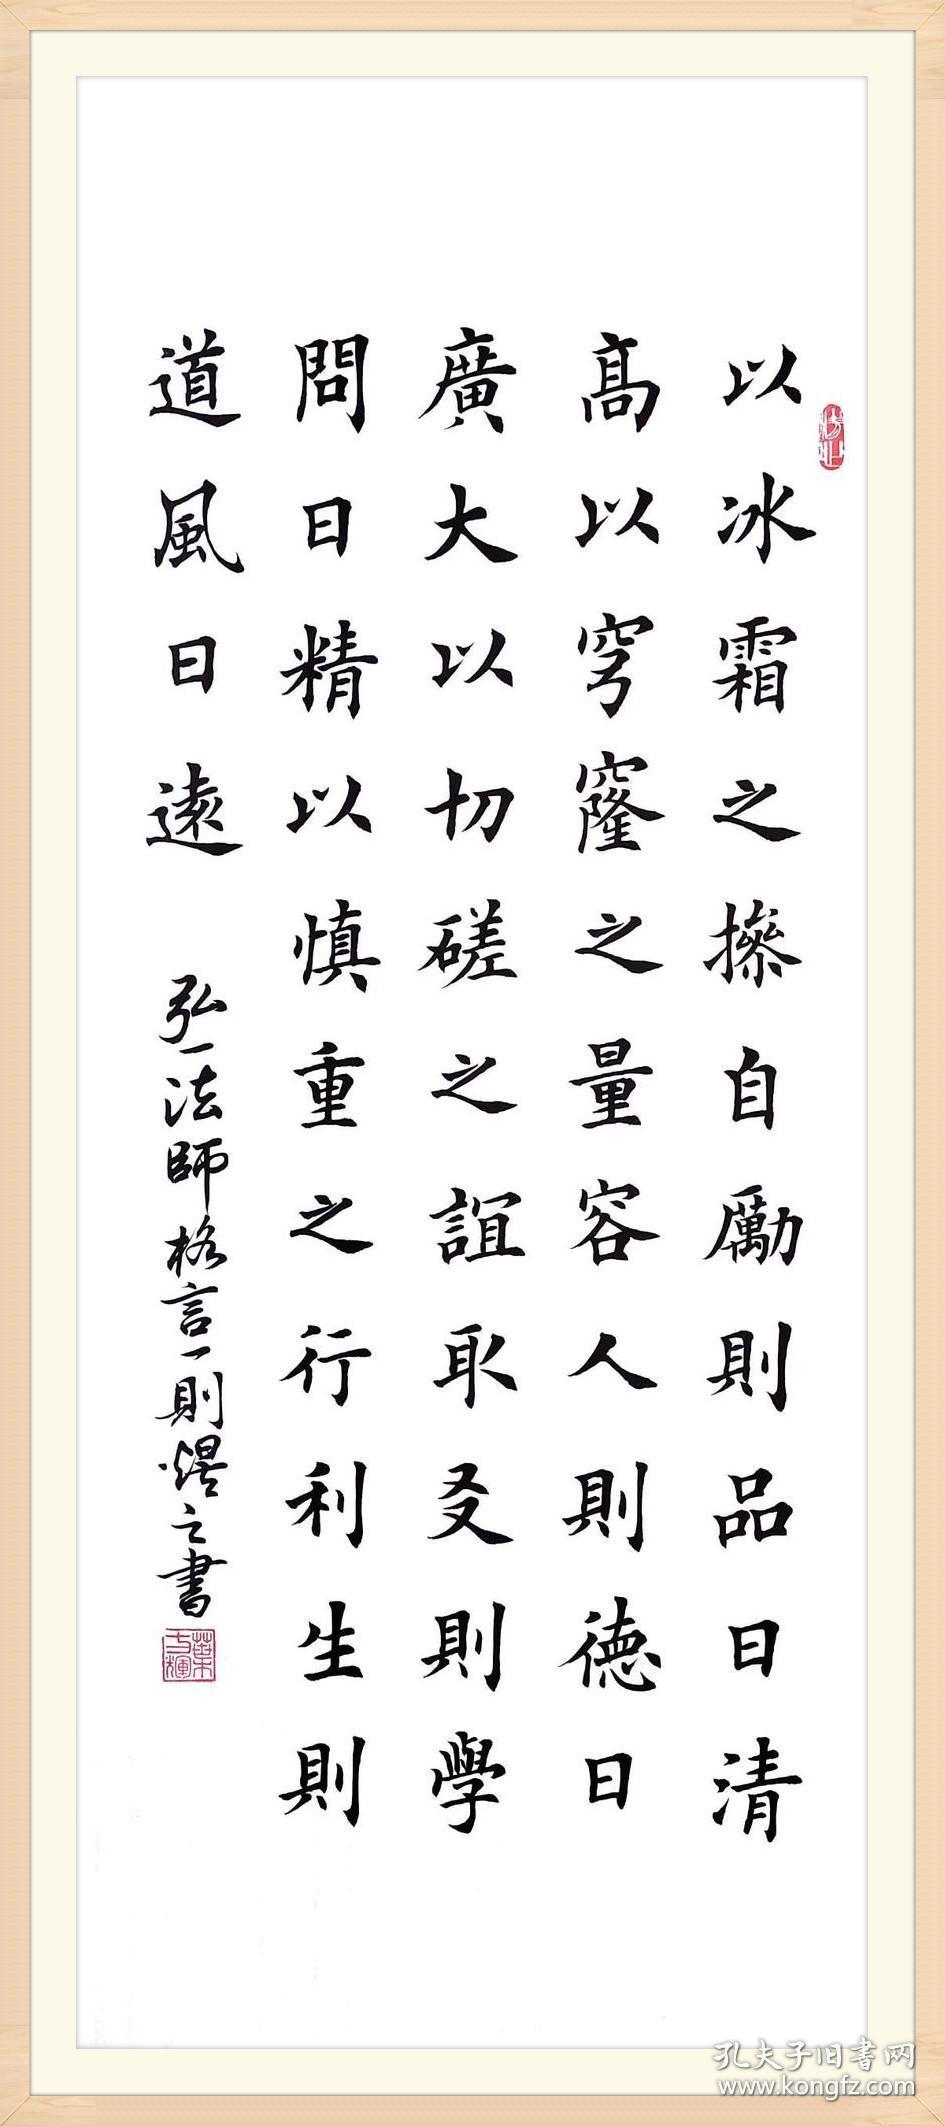 以冰霜之操自勵則品日清
高以穹窿之量容人則德日
廣大以切磋之誼取友則學
問日精以慎重之行利生則
道風日遠
弘一法師格言一則煜之書
孔夫子旧书网
www.kongfz.com